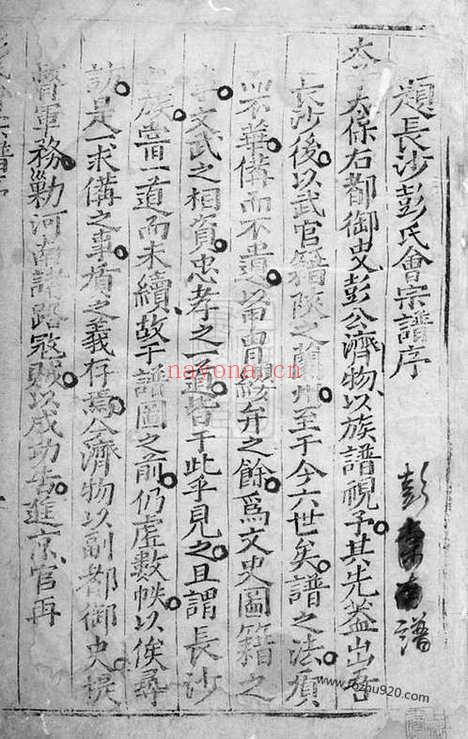 題長沙彭氏會宗譜序
太子太保右都御史彭公濟物以族譜視予其先蓋出召
長沙後以武官籍陝之蘭州至于今六世矣譜之法質
而不華備而不遺冑絃弁之餘為文史圖籍之
文武之相資忠孝之一道皆于此乎見之且謂長沙
族 一道而未續故于譜圖之前仍虛數帙以俟尋
訪是一求備之事盾之義存焉公濟物以副都御史提
督軍務勦河南諸路寇賊以成功告進京官再
彭 譜
nayona.cn
www.rozhu920.com